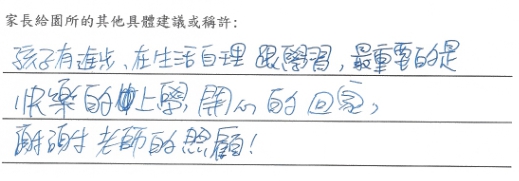 家長給園所的其他具體建議或稱許：
孩子有進步、在生活自理 跟學習，最重要的是
快樂的上學，開心的回家，
謝謝老師的照顧！